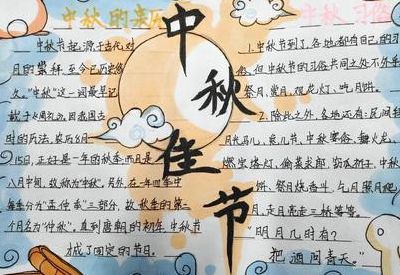 中秋的来历
中秋节起源于古代对
月的崇拜,至今已历史悠
久。"中秋"这一词最早见
于《周礼》,因我国古
时的历法,农历8月
15日,正好是一年的秋季,而且是
八月中旬,故称为"中秋"。另外,在一年四季中
每季分为"孟、仲、季"三部分,故秋季的第二
个月名为"仲秋",直到唐朝的初年,中秋节
成了固定的节日。
中秋佳节
中秋习俗
1.中秋节到了,各地都有自己的习
俗,但中秋节的习俗共同之处不外乎
祭月、赏月、观花灯、吃月饼。
2.除此之外,各地还有:民间拜
月光马儿、兔儿节、中秋宴俗、舞火龙、
燃宝塔灯、偷菜求郎、窃瓜祈子、中秋
饼、祭月烧斗香、乞月照月爬
月、走月亮走三桥等等。
"明月几时有?
把酒问青天。"